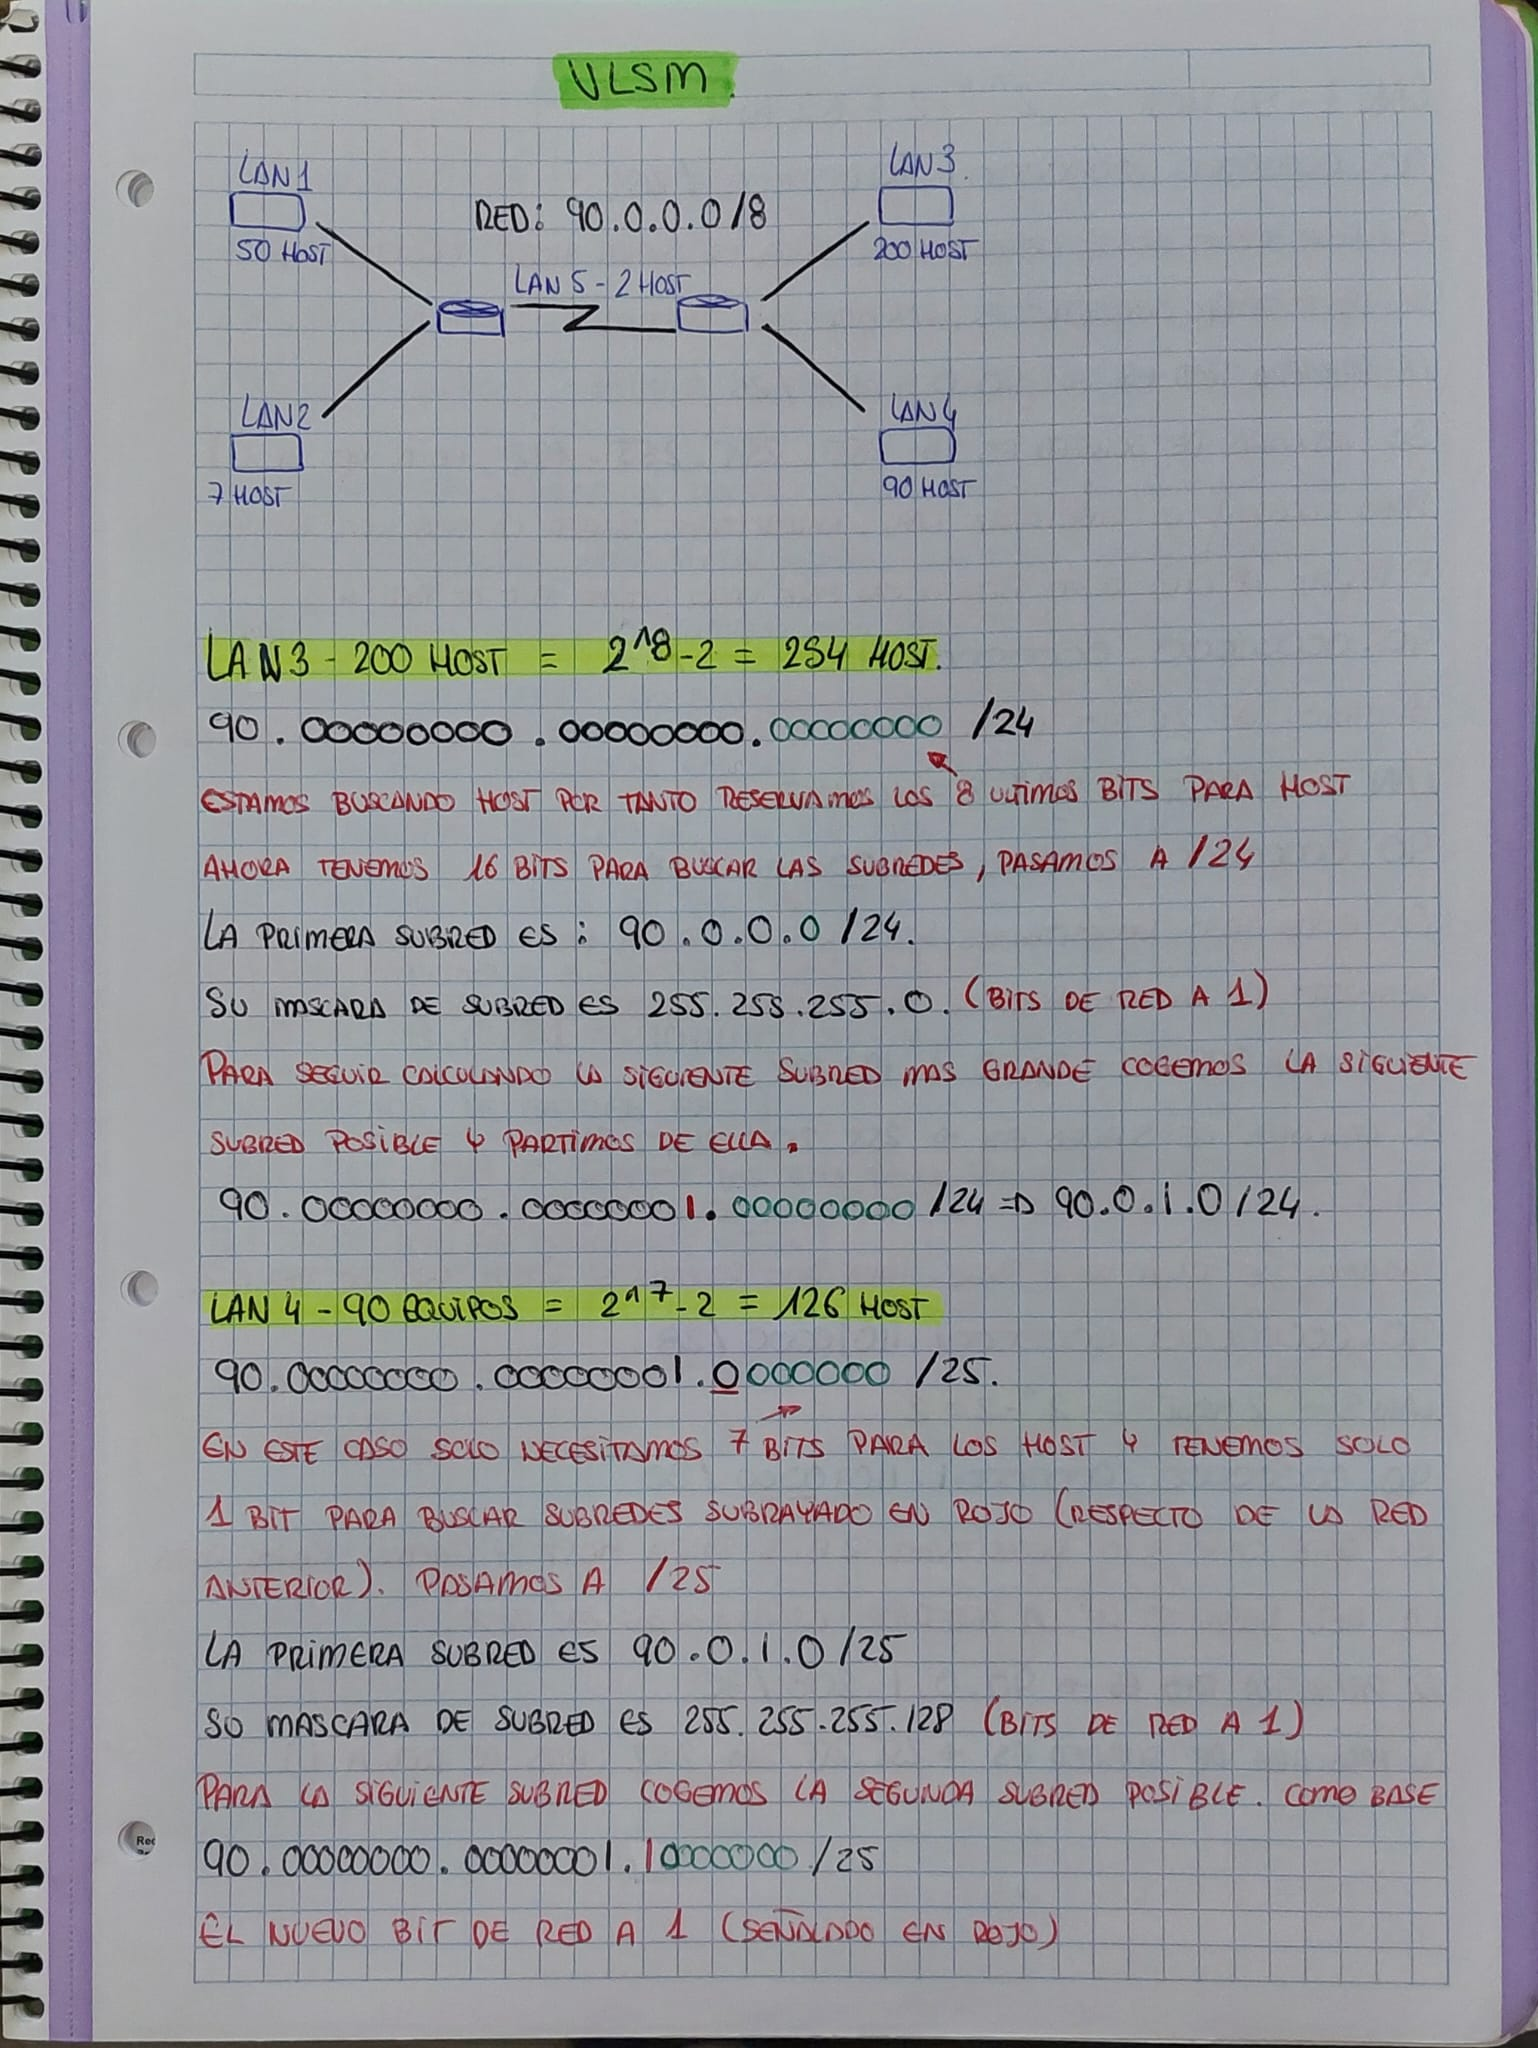 VLSM.
LAN1
50 HOST
RED: 90.0.0.0/8
LAN 3.
200 HOST
LAN 5 - 2 HOST
LAN2
7 HOST
LAN4
90 HOST
LAN 3 - 200 HOST = 2^8-2 = 254 HOST.
90.00000000.00000000.00000000 /24
ESTAMOS BUSCANDO HOST POR TANTO RESERVAMOS LOS 8 ULTIMOS BITS PARA HOST
AHORA TENEMOS 16 BITS PARA BUSCAR LAS SUBREDES, PASAMOS A /24
LA PRIMERA SUBRED ES: 90.0.0.0/24.
SU MASCARA DE SUBRED ES 255.255.255.0. (BITS DE RED A 1)
PARA SEGUIR CALCULANDO LA SIGUIENTE SUBRED MAS GRANDE COGEMOS LA SIGUIENTE
SUBRED POSIBLE Y PARTIMOS DE ELLA.
90.00000000.00000001.00000000/24 => 90.0.1.0/24.
LAN 4 - 90 EQUIPOS = 2^7-2 = 126 HOST
90.00000000.00000001.0000000 /25.
EN ESTE CASO SOLO NECESITAMOS 7 BITS PARA LOS HOST Y TENEMOS SOLO
1 BIT PARA BUSCAR SUBREDES SUBRAYADO EN ROJO (RESPECTO DE LA RED
ANTERIOR). PASAMOS A /25
LA PRIMERA SUBRED ES 90.0.1.0/25
SO MASCARA DE SUBRED ES 255.255.255.128 (BITS DE RED A 1)
PARA LA SIGUIENTE SUBRED COGEMOS LA SEGUNDA SUBRED POSIBLE. COMO BASE
90.00000000.00000001.10000000/25
EL NUEVO BIT DE RED A 1 (SEÑALADO EN ROJO)